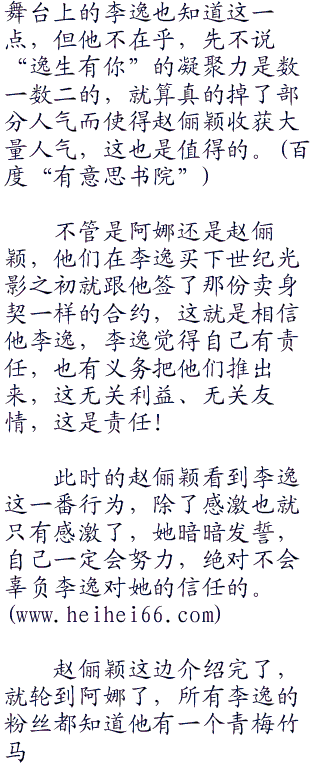 舞台上的李逸也知道这一
点，但他不在乎，先不说
“逸生有你”的凝聚力是数
一数二的，就算真的掉了部
分人气而使得赵俪颖收获大
量人气，这也是值得的。(百
度“有意思书院”)
不管是阿娜还是赵俪
颖，他们在李逸买下世纪光
影之初就跟他签了那份卖身
契一样的合约，这就是相信
他李逸，李逸觉得自己有责
任，也有义务把他们推出
来，这无关利益、无关友
情，这是责任!
此时的赵俪颖看到李逸
这一番行为，除了感激也就
只有感激了，她暗暗发誓，
自己一定会努力，绝对不会
辜负李逸对她的信任的。
(www.heihei66.com)
赵俪颖这边介绍完了，
就轮到阿娜了，所有李逸的
粉丝都知道他有一个青梅竹
马